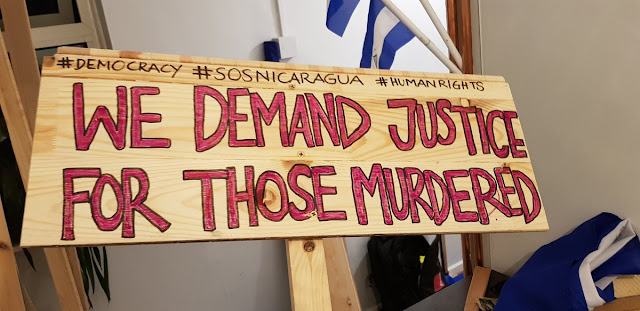 #DEMOCRACY #SOSNICARAGUA #HUMANRIGHTS
WE DEMAND JUSTICE
FOR THOSE MURDERED